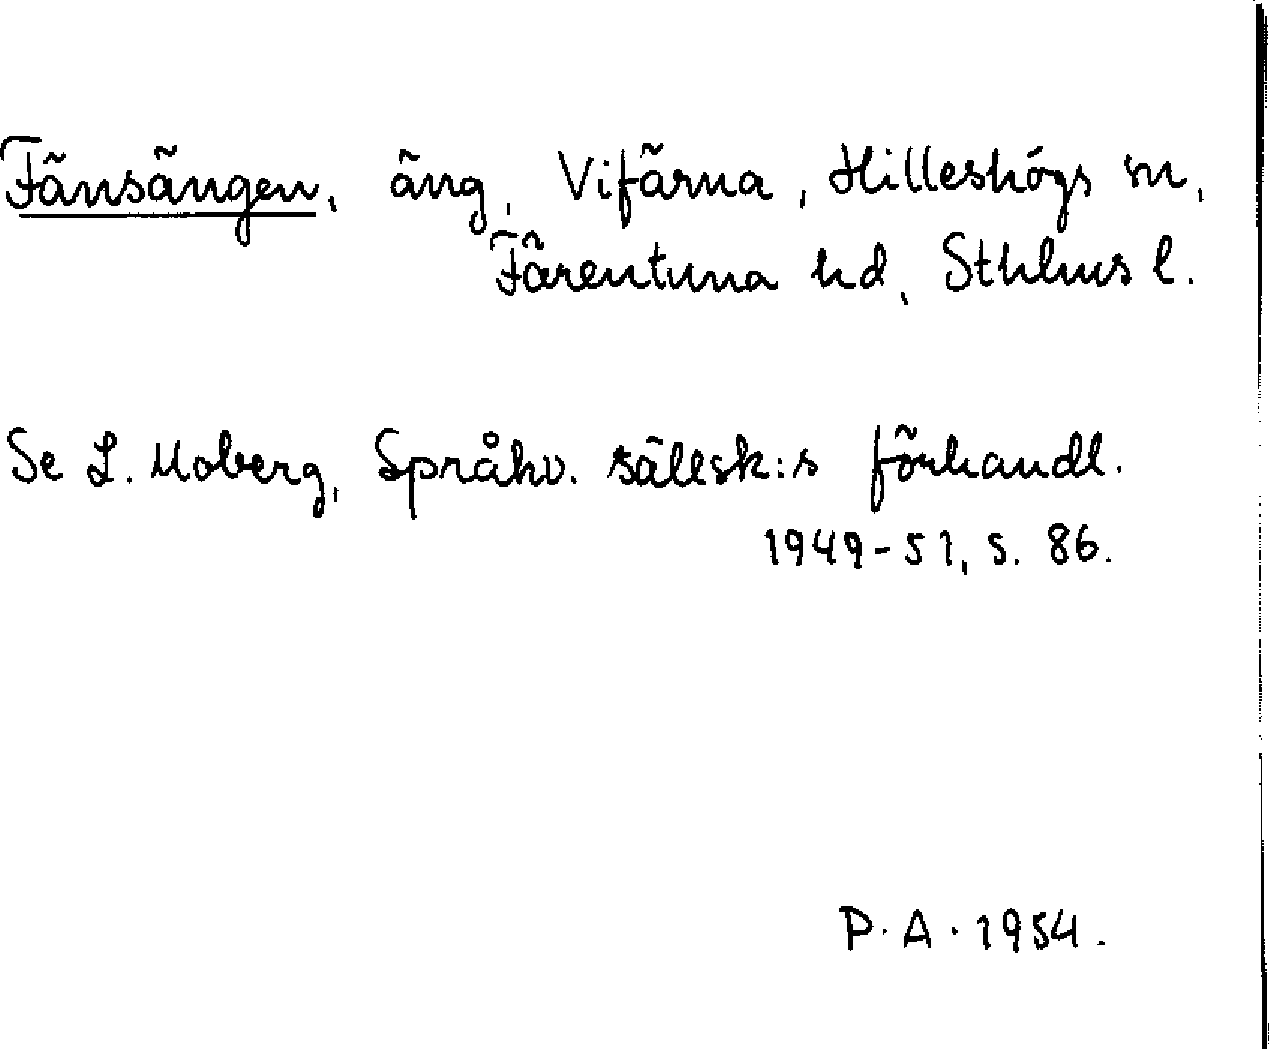 Fänsängen, äng, Vifärna, Hilleshögs sn,
Färentuna hd, Sthlms l.
Se L. Moberg, Språkv. sällsk:s förhandl.
1949-51, s. 86.
P. A. 1954.